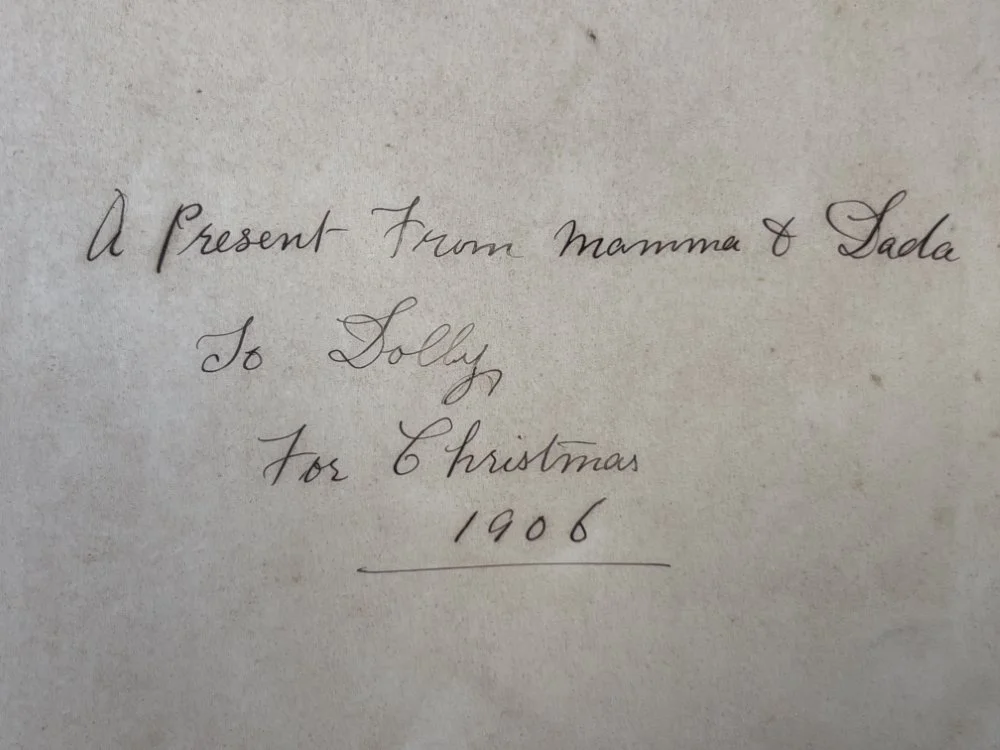 A Present From Mamma & Dada
To Dolly,
For Christmas
1906